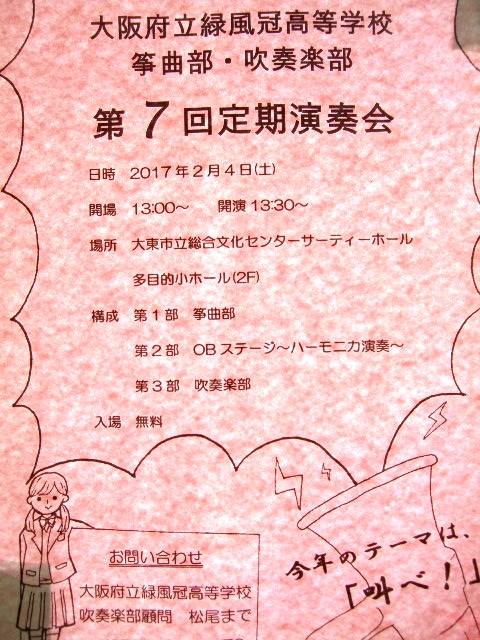 大阪府立緑風冠高等学校
筝曲部・吹奏楽部
第7回定期演奏会
日時 2017年2月4日(土)
開場 13:00～ 開演 13:30～
場所 大東市立総合文化センターサーティーホール
多目的小ホール(2F)
構成 第1部 筝曲部
第2部 OBステージ～ハーモニカ演奏～
第3部 吹奏楽部
入場 無料
お問い合わせ
大阪府立緑風冠高等学校
吹奏楽部顧問 松尾まで
今年のテーマは、
「叫べ!」